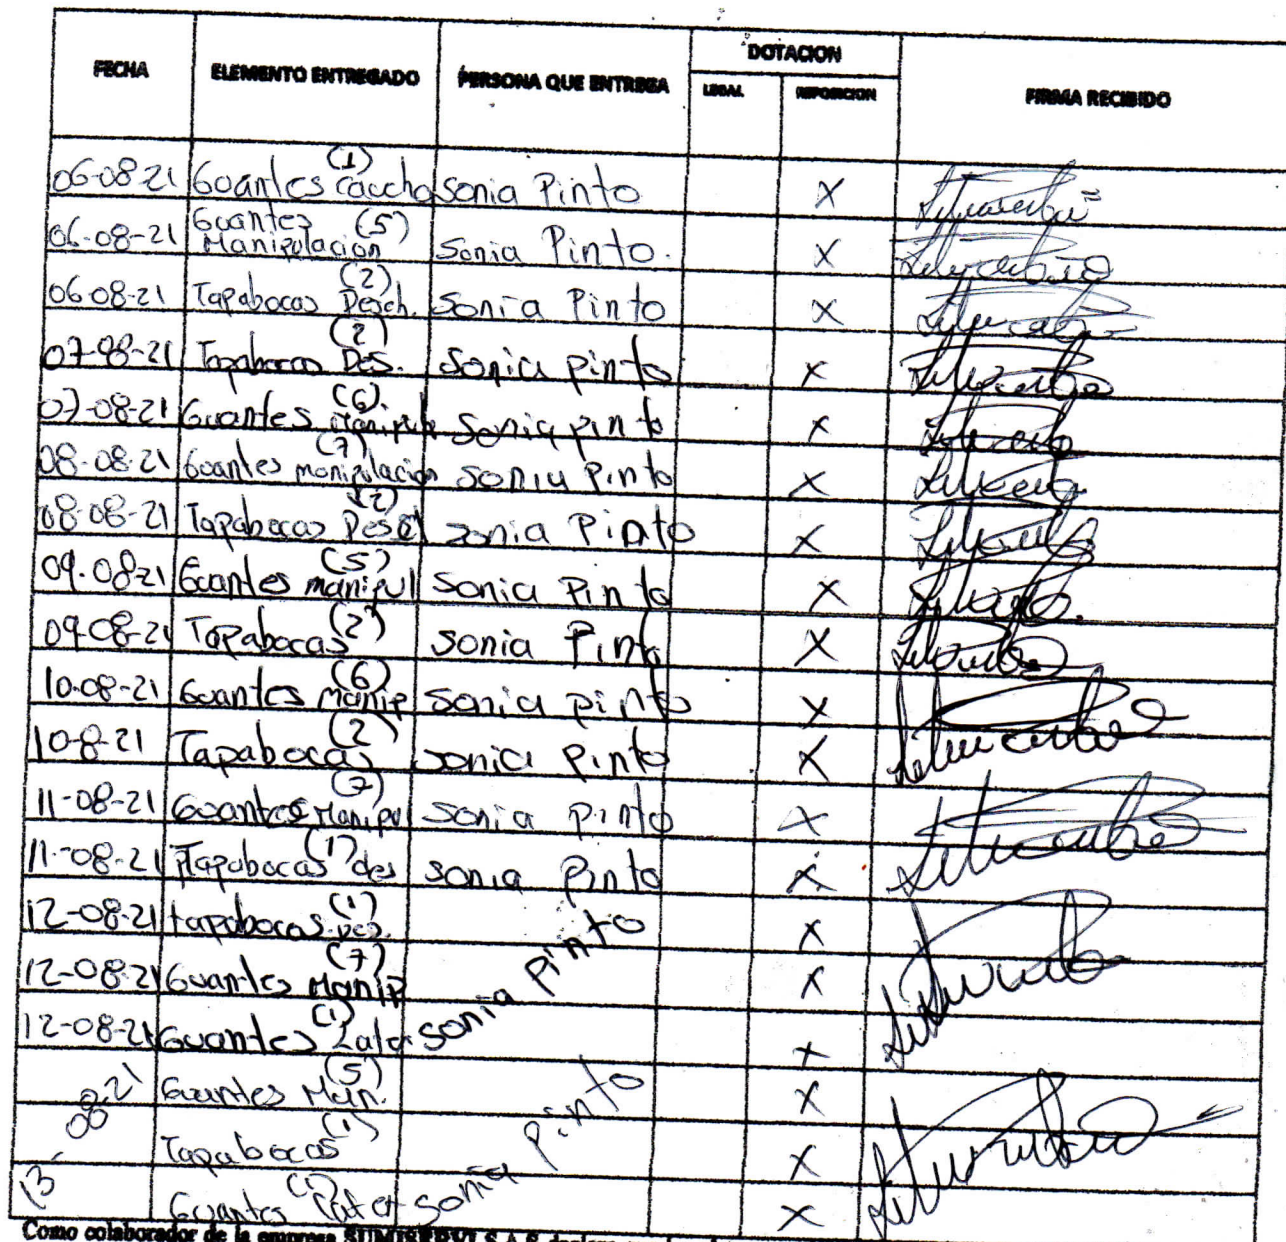 FECHA ELEMENTO ENTREGADO PERSONA QUE ENTREGA DOTACION FIRMA RECIBIDO
LEGAL REPOSICION
06-08-21 Guantes caucho (1) Sonia Pinto X
06-08-21 Guantes Manipulacion (5) Sonia Pinto. X
06-08-21 Tapabocas Desch. (2) Sonia Pinto X
07-08-21 Tapabocas Des. (2) Sonia pinto X
07-08-21 Guantes Manipula (6) Sonia pinto X
08-08-21 Guantes manipulacion (7) Sonia Pinto X
08-08-21 Tapabocas Desch (2) Sonia Pinto X
09-08-21 Guantes manipul (5) Sonia Pinto X
09-08-21 Tapabocas (2) Sonia Pinto X
10-08-21 Guantes Manip (6) Sonia pinto X
10-8-21 Tapabocas (2) Sonia Pinto X
11-08-21 Guantes Manipul (7) Sonia pinto X
11-08-21 Tapabocas des (1) Sonia Pinto X
12-08-21 tapabocas Des. (1) X
12-08-21 Guantes Manip (7) X
12-08-21 Guantes Latex (1) Sonia Pinto X
13-08-21 Guantes Man. (5) X
Tapabocas (1) X
Guantes Latex (1) Sonia Pinto X
Como colaborador de la empresa SUMISERVI S.A.S